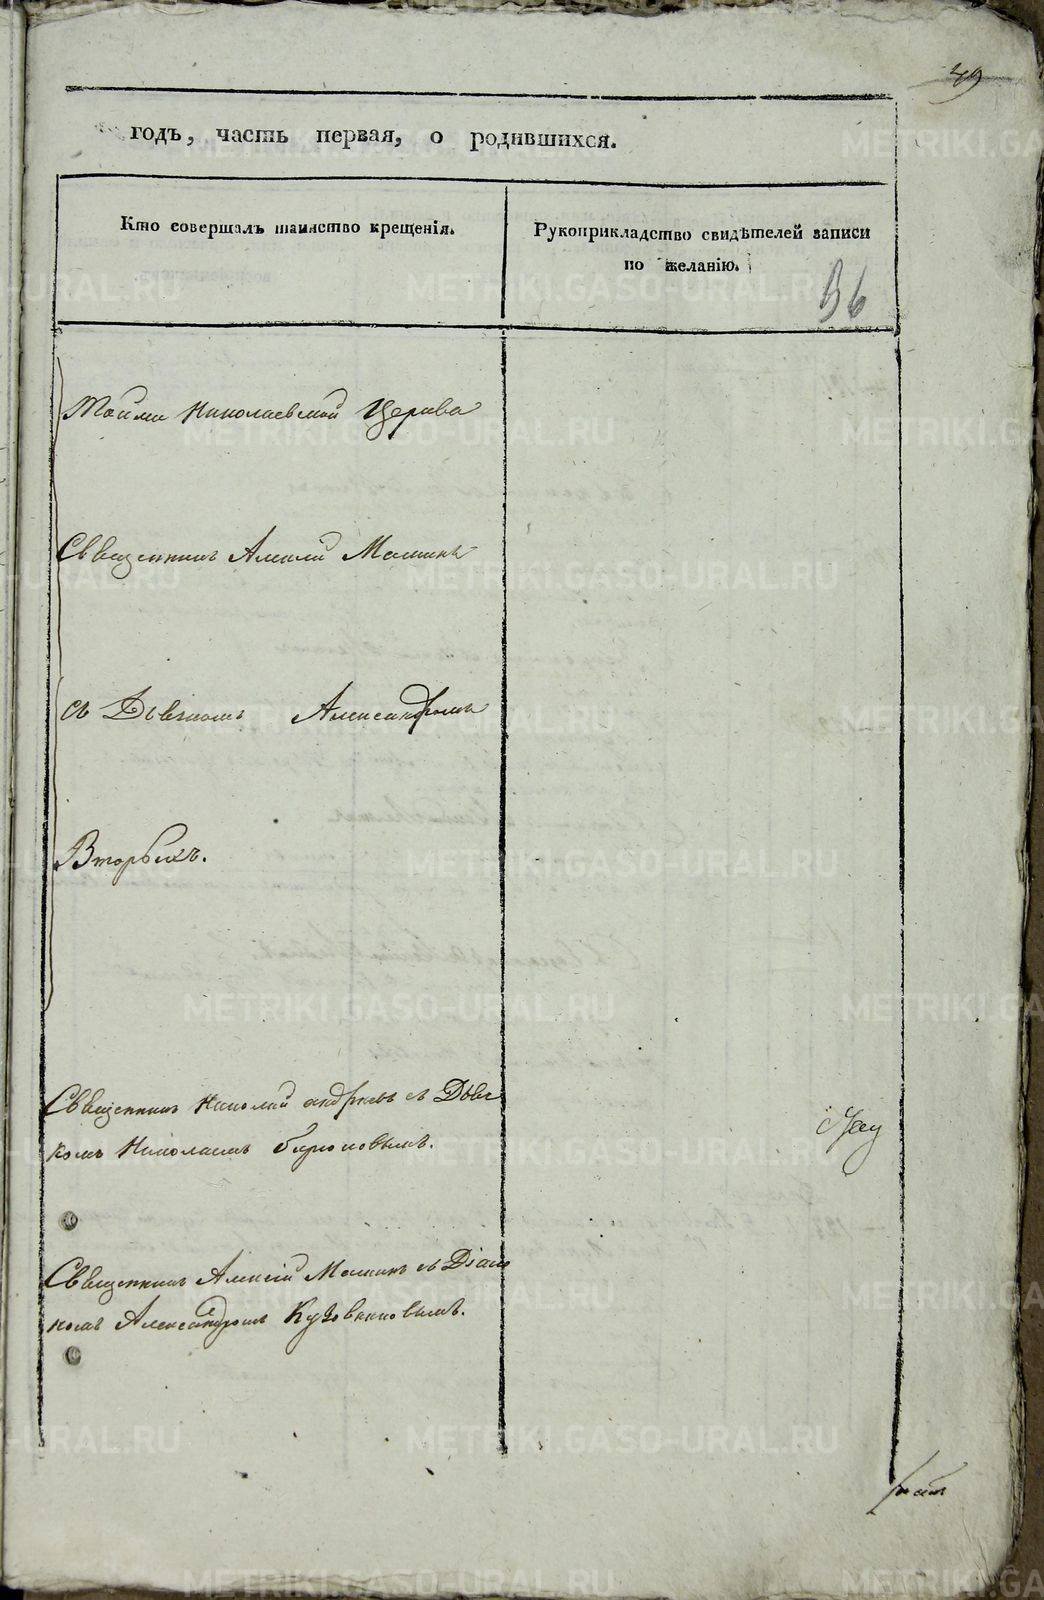 49
годъ, часть первая, о родившихся.
Кто совершалъ таинство крещенія.
Рукоприкладство свидѣтелей записи
по желанію.
36
Тойже Николаевской Церкви
Священникъ Алексѣй Маминъ
съ Дьячкомъ Александромъ
Вторыхъ.
Священникъ Николай андреевъ съ Дьяч
комъ Николаемъ
Священникъ Алексій Маминъ съ Діако
номъ Александромъ Кузовниковымъ.
METRIKI.GASO-URAL.RU